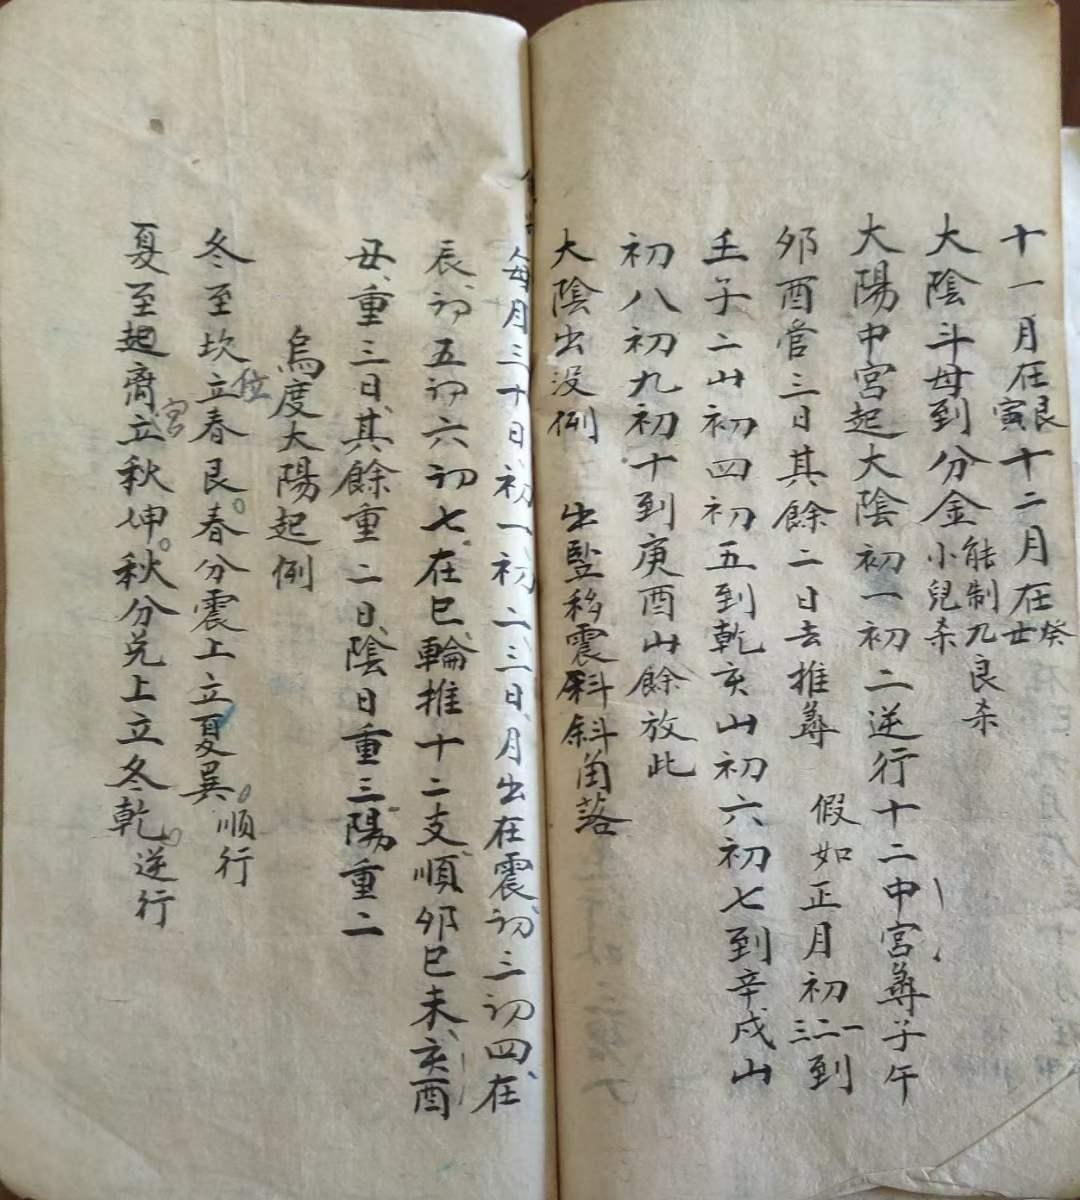 十一月在艮寅十二月在癸丑
大陰斗母到分金能制九良杀小兒杀
大陽中宮起大陰初一初二逆行十二中宮尋子午
夘酉管三日其餘二日去推尋 假如正月初一二三到
壬子二山初四初五到乾亥山初六初七到辛戍山
初八初九初十到庚酉山餘放此
大陰出没例 出監移震斜斜角落
每月三十日初一初二三日月出在震初三初四在
辰初五初六初七在巳輪推十二支順夘巳未亥酉
丑重三日其餘重二日陰日重三陽重二
烏度大陽起例
冬至坎位立春艮春分震上立夏巽順行
夏至起离宮立秋坤秋分兑上立冬乾逆行